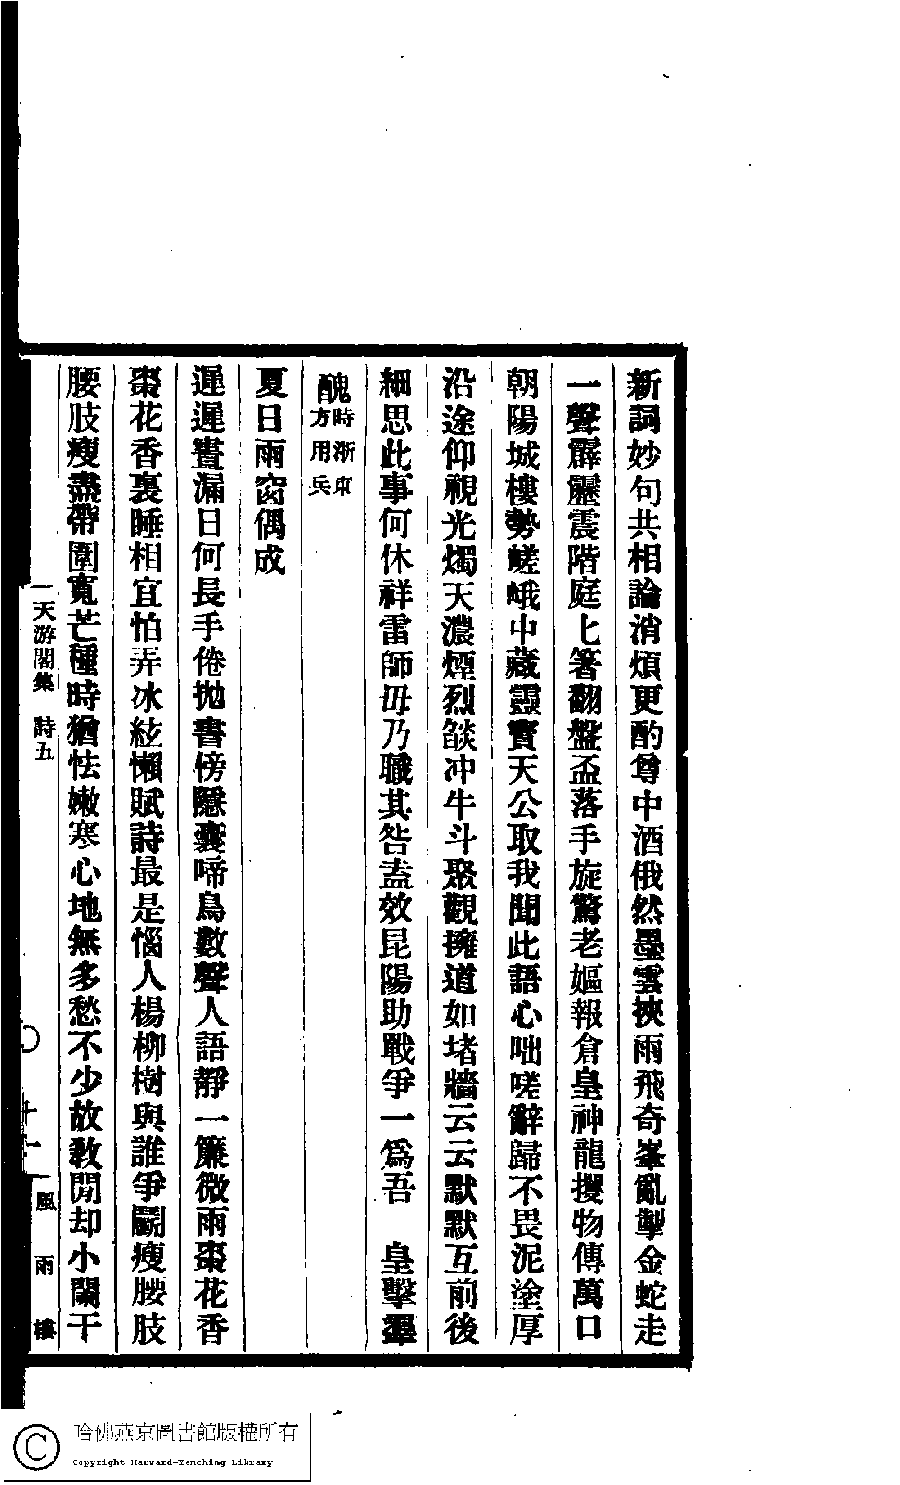 新詞妙句共相論消煩更酌尊中酒俄然墨雲挾雨飛奇峯亂掣金蛇走
一聲霹靂震階庭匕箸翻盤盃落手旋驚老嫗報倉皇神龍攫物傳萬口
朝陽城樓勢嵯峨中藏靈寶天公取我聞此語心咄嗟辭歸不畏泥塗厚
沿途仰視光燭天濃煙烈燄冲牛斗聚觀擁道如堵牆云云默默互前後
細思此事何休祥雷師毋乃職其咎盍效昆陽助戰爭一爲吾　皇擊
醜時浙東方用兵
夏日雨窗偶成
遲遲晝漏日何長手倦拋書傍隱囊啼鳥數聲人語靜一簾微雨棗花香
棗花香裏睡相宜怕弄冰絃懶賦詩最是惱人楊柳樹與誰爭鬭瘦腰肢
腰肢瘦盡帶圍寬芒種時猶怯嫩寒心地無多愁不少故教閒却小闌干
天游閣集　詩五
風雨樓
哈佛燕京圖書館版權所有
Copyright Harvard-Yenching Library